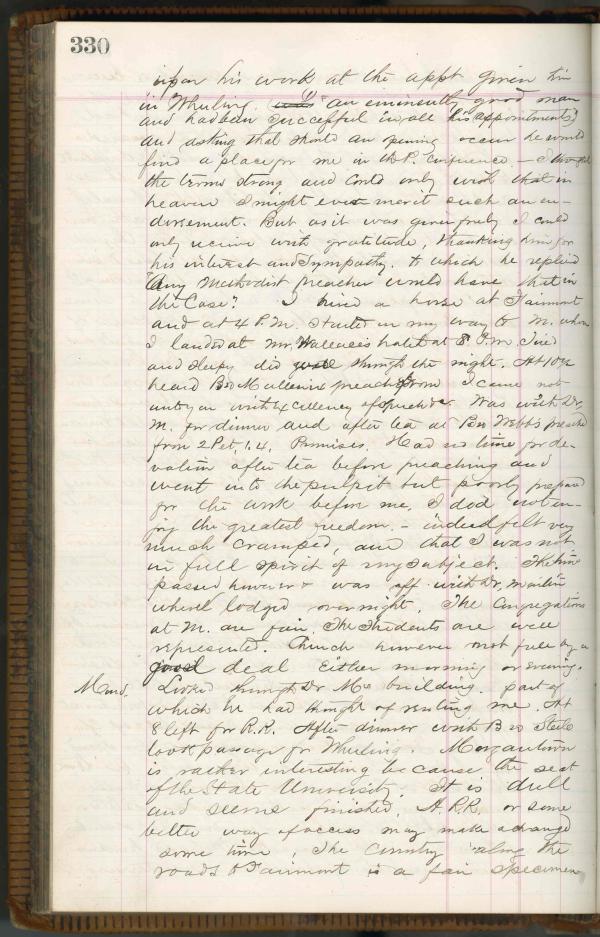 330
upon his work at the appt given him
in Wheeling. an eminently good man
and had been successful in all his appointments
and asking that should an opening occur he would
find a place for me in the P. Conference — I thought
the terms strong and could only wish that in
heaven I might ever merit such an en-
dorsement. But as it was given freely I could
only receive with gratitude, thanking him for
his interest and sympathy. to which he replied
"Any Methodist preacher would have that in
the Case". I hired a horse at Fairmont
and at 4 P.M. started on my way to M. where
I landed at Mr. Wallace's hotel at 8 P.M. Tired
and sleepy did well through the night. At 10½
heard Bro preach from I came not
unto you with excellency of speech &c. Was with Dr.
M. for dinner and after tea at Bro Webb's preached
from 2 Pet. 1.4. Promises. Had no time for de-
votion after tea before preaching and
went into the pulpit but poorly prepared
for the work before me. I did not en-
joy the greatest freedom. — indeed felt very
much cramped, and that I was not
in full spirit of my subject. The time
passed however & was off with Dr. Martin
where I lodged over night. The Congregations
at M. are fair. The Students are well
represented. Church however not full by a
good deal either morning or evening.
Mond. Looked through Dr Ms building. part of
which he had thought of renting me. At
8 left for R.R. After dinner with Bro Steele
took passage for Wheeling. Morgantown
is rather interesting because the seat
of the State University. It is dull
and seems finished. A R.R. or some
better way of access may make a change
some time. The Country along the
roads to Fairmont is a fair specimen